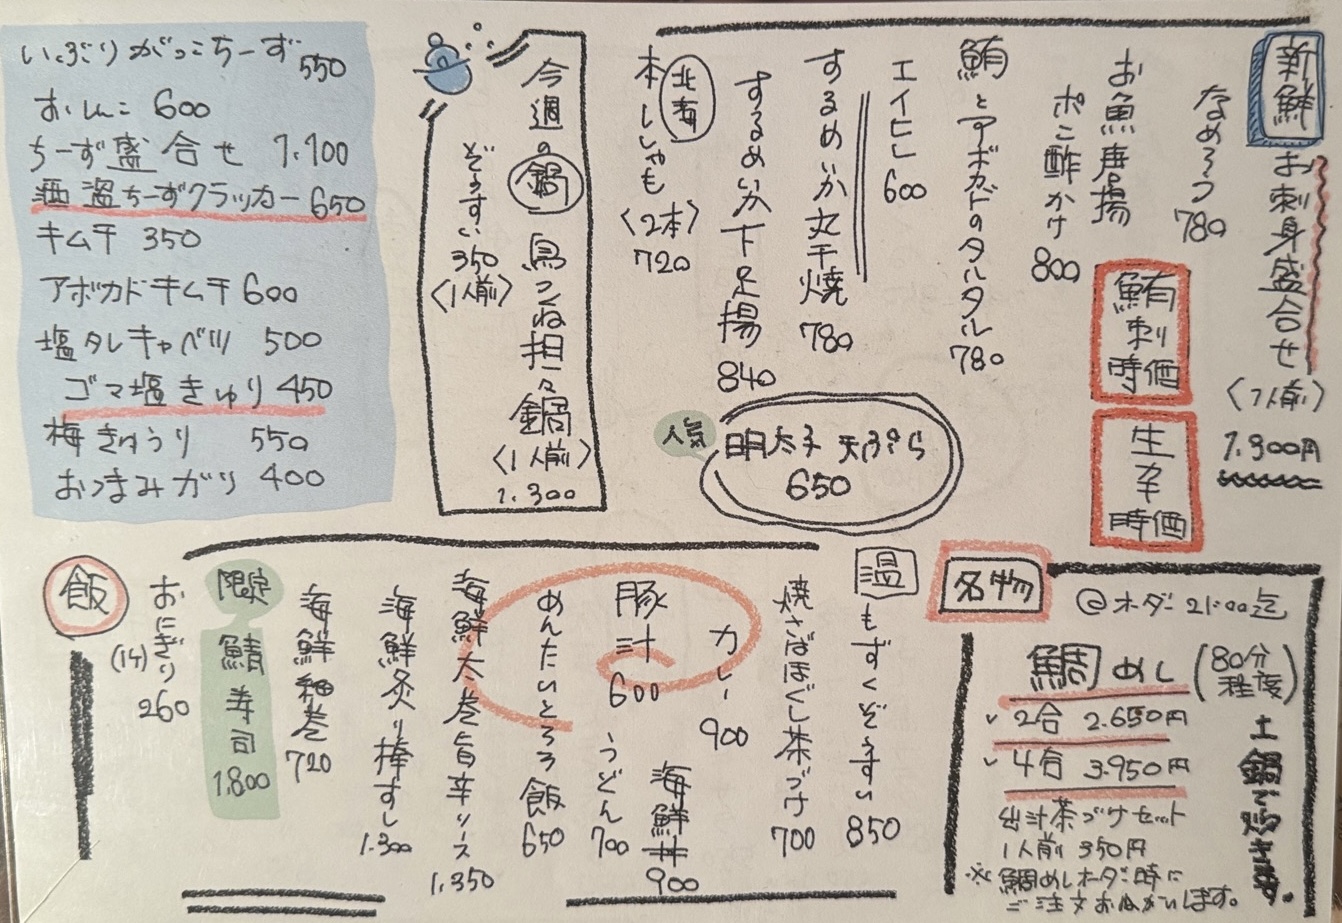 新鮮 お刺身盛合せ
〈1人前〉
1.900円
なめろう 780
お魚唐揚
ポン酢かけ 800
鮪刺
時価
生ガキ
時価
鮪とアボカドのタルタル 780
エイヒレ 600
するめいか丸干焼 780
するめいか下足揚 840
北海
本ししゃも〈2本〉720
人気
明太子天ぷら
650
今週の鍋 鳥つくね担々鍋
〈1人前〉
1.300
ぞうすい 350
〈1人前〉
いぶりがっこちーず 550
おしんこ 600
ちーず盛合せ 1.100
酒盗ちーずクラッカー 650
キムチ 350
アボカドキムチ 600
塩タレキャベツ 500
ゴマ塩きゅり 450
梅きゅうり 550
おつまみガリ 400
名物
@オーダー 21:00迄
鯛めし (80分程度)
2合 2.650円
4合 3.950円
土鍋で
出汁茶づけセット
1人前 350円
※鯛めしオーダー時に
ご注文お願いします。
温
もずくぞうすい 850
焼さばほぐし茶づけ 700
カレー 900
海鮮丼 900
豚汁 600
うどん 700
めんたいとろろ飯 650
海鮮太巻旨辛ソース 1.350
海鮮炙り棒すし 1.300
海鮮細巻 720
限定
鯖寿司 1.800
おにぎり (1ヶ) 260
飯